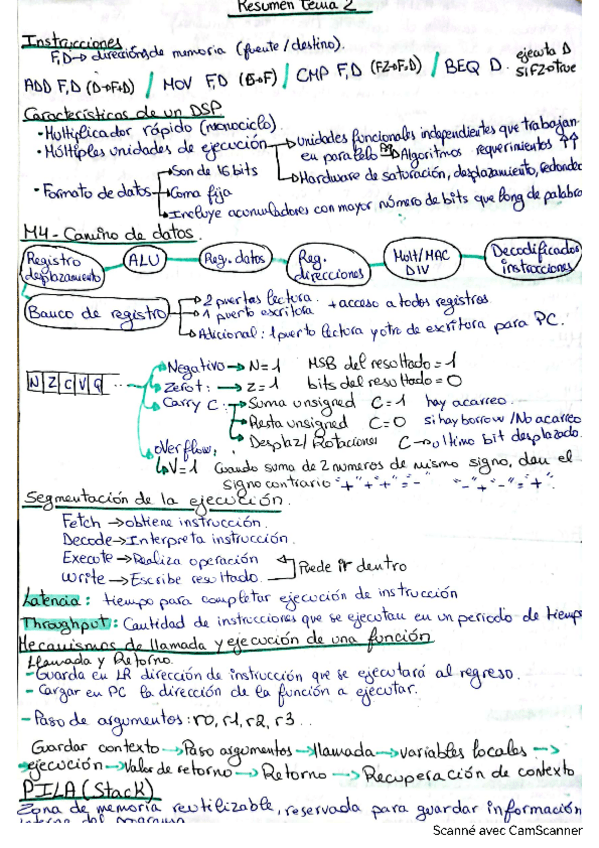 Resumen tema 2
Instrucciones
F,D → direcciones de memoria (fuente/destino).
ADD F,D (D→F+D) / MOV F,D (D→F) / CMP F,D (FZ→F=D) / BEQ D. ejecuta D si FZ=true
Características de un DSP
• Multiplicador rápido (monociclo).
• Múltiples unidades de ejecución → Unidades funcionales independientes que trabajan
en paralelo → Algoritmos requerimientos ↑↑
→ Hardware de saturación, desplazamiento, redondeo
• Formato de datos → Son de 16 bits
→ Coma fija
→ Incluye acumuladores con mayor número de bits que long de palabra
M4 - Camino de datos.
Registro desplazamiento ALU Reg. datos Reg. direcciones Mult/MAC DIV Decodificador instrucciones
Banco de registro → 2 puertas lectura. + acceso a todos registros
→ 1 puerto escritora
→ Adicional: 1 puerto lectura y otro de escritura para PC.
N Z C V Q → Negativo → N=1 MSB del resultado = 1
→ Zero t: → Z=1 bits del resultado = 0
→ Carry C: → Suma unsigned C=1 hay acarreo.
→ Resta unsigned C=0 si hay borrow / No acarreo
→ Desplaz/Rotaciones C → ultimo bit desplazado.
→ Overflow,
→ V=1 Cuando suma de 2 numeros de mismo signo, dan el
signo contrario "+"+"+"="-" "-"+"-"="+".
Segmentación de la ejecución.
Fetch → obtiene instrucción.
Decode → Interpreta instrucción.
Execute → Realiza operación
Write → Escribe resultado. Puede ir dentro
Latencia: tiempo para completar ejecución de instrucción
Throughput: Cantidad de instrucciones que se ejecutan en un periodo de tiempo
Mecanismos de llamada y ejecución de una función
Llamada y Retorno.
- Guarda en LR dirección de instrucción que se ejecutará al regreso.
- Cargar en PC la dirección de la función a ejecutar.
- Paso de argumentos: r0, r1, r2, r3 . .
Guardar contexto → Paso argumentos → llamada → variables locales →
ejecución → Valor de retorno → Retorno → Recuperación de contexto
PILA (Stack)
Zona de memoria reutilizable, reservada para guardar información
Scanné avec CamScanner